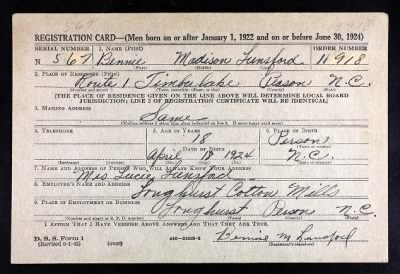 REGISTRATION CARD—(Men born on or after January 1, 1922 and on or before June 30, 1924)
SERIAL NUMBER 1. NAME (Print) ORDER NUMBER
N 567 Bennie Madison Lunsford 11918
(First) (Middle) (Last)
2. PLACE OF RESIDENCE (Print)
Route 1 Timberlake Person N.C.
(Number and street) (Town, township, village, or city) (County) (State)
[THE PLACE OF RESIDENCE GIVEN ON THE LINE ABOVE WILL DETERMINE LOCAL BOARD
JURISDICTION; LINE 2 OF REGISTRATION CERTIFICATE WILL BE IDENTICAL]
3. MAILING ADDRESS
Same
4. TELEPHONE 5. AGE IN YEARS 6. PLACE OF BIRTH
18 Person
DATE OF BIRTH (Town or county)
April 18 1924 N.C.
(Exchange) (Number) (Mo.) (Day) (Yr.) (State or country)
7. NAME AND ADDRESS OF PERSON WHO WILL ALWAYS KNOW YOUR ADDRESS
Mrs Lucie Lunsford
8. EMPLOYER'S NAME AND ADDRESS
Longhurst Cotton Mills
9. PLACE OF EMPLOYMENT OR BUSINESS
Longhurst Person N.C.
(Number and street or R. F. D. number) (Town) (County) (State)
I AFFIRM THAT I HAVE VERIFIED ABOVE ANSWERS AND THAT THEY ARE TRUE.
D. S. S. Form 1
Bennie M Lunsford
(Registrant's signature)